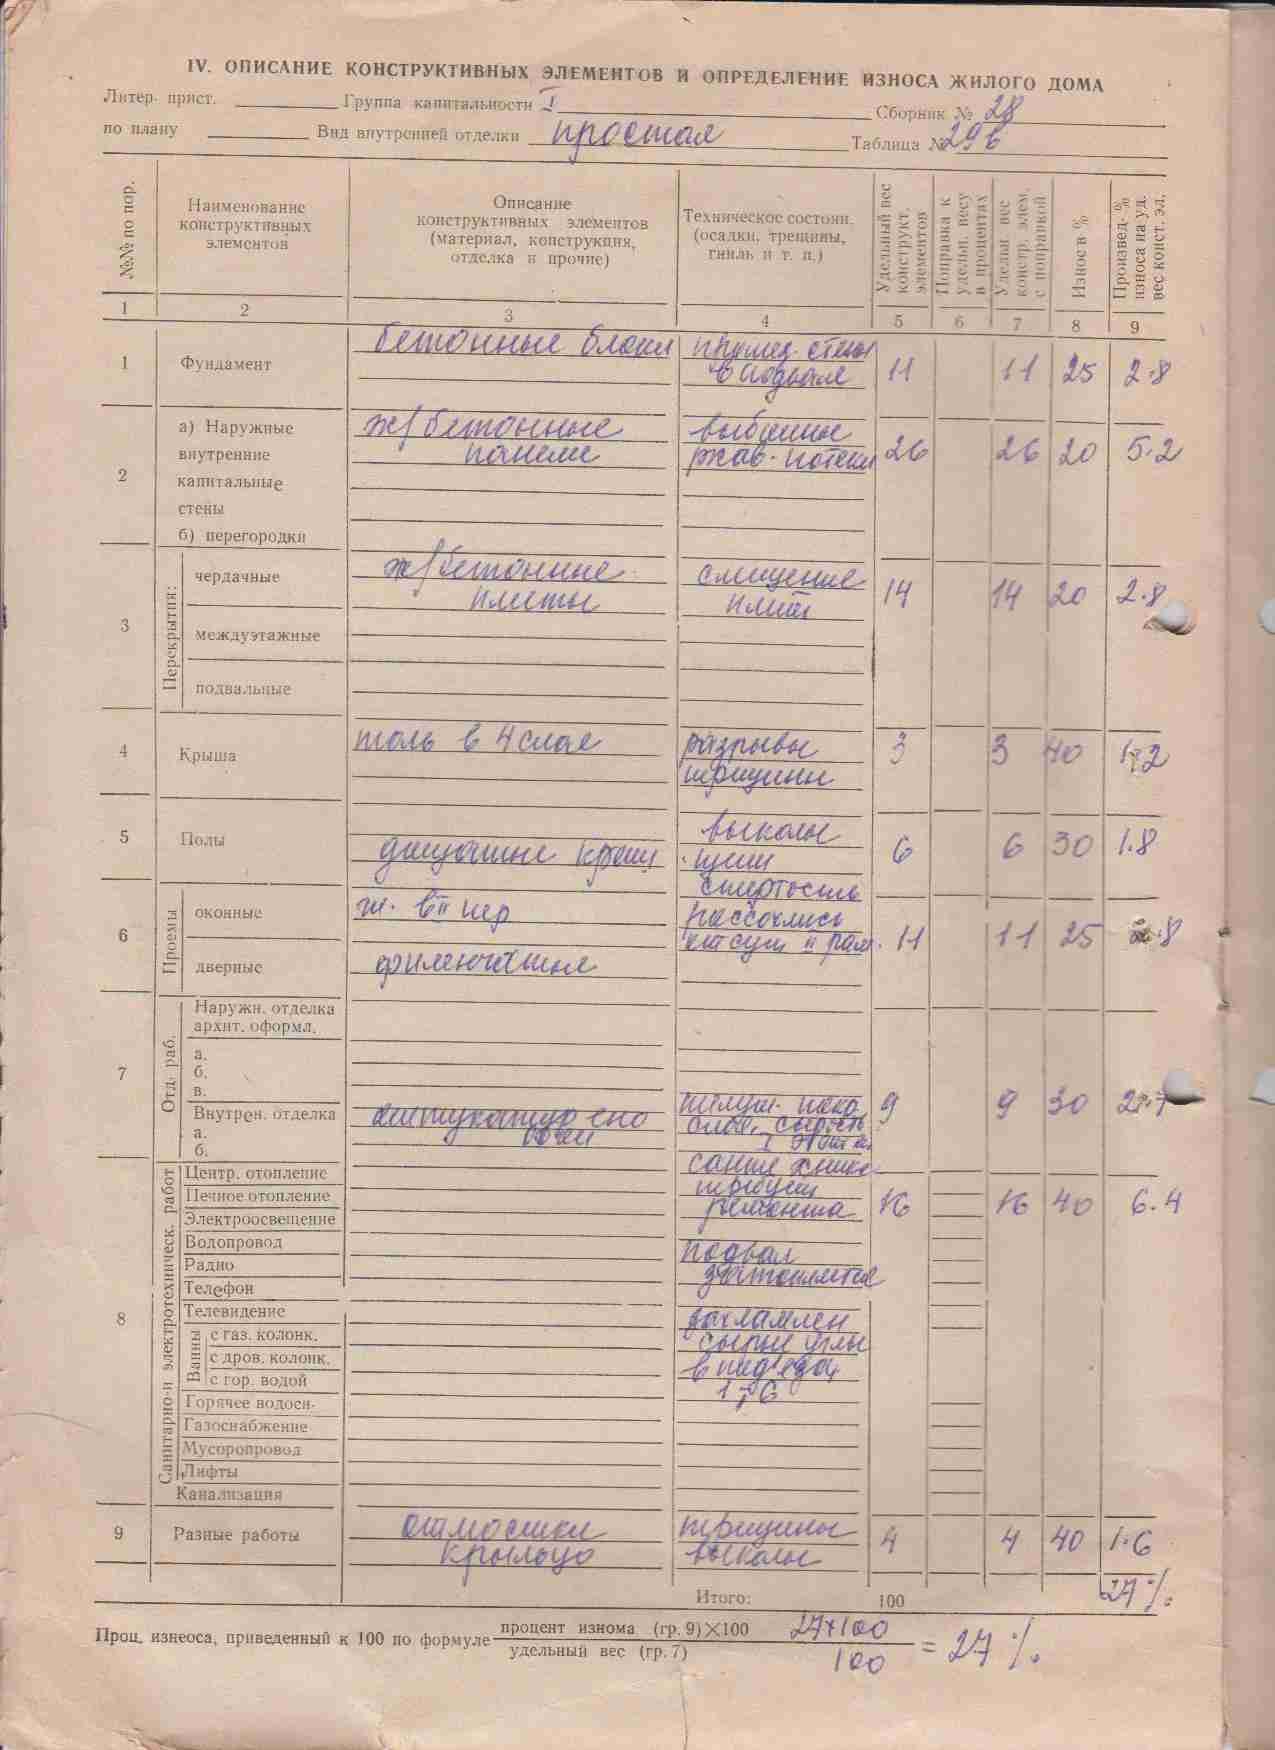 IV. ОПИСАНИЕ КОНСТРУКТИВНЫХ ЭЛЕМЕНТОВ И ОПРЕДЕЛЕНИЕ ИЗНОСА ЖИЛОГО ДОМА
Литер. прист. Группа капитальности I Сборник № 28
по плану Вид внутренней отделки простая Таблица № 29 в
№№ по пор.
Наименование
конструктивных
элементов
Описание
конструктивных элементов
(материал, конструкция,
отделка и прочие)
Техническое состоян.
(осадки, трещины,
гниль и т. п.)
Удельный вес
конструкт.
элементов
Поправка к
удельн. весу
в процентах
Удельн. вес
констр. элем.
с поправкой
Износ в %
Произвед. %
износа на уд.
вес конст. эл.
1 2 3 4 5 6 7 8 9
1 Фундамент бетонные блоки стены
в подвале 11 11 25 2.8
2 а) Наружные
внутренние
капитальные
стены
б) перегородки
ж/бетонные
панели
ржав. потеки 26 26 20 5.2
3 Перекрытия:
чердачные
междуэтажные
подвальные
ж/бетонные
плиты
смещение
плит 14 14 20 2.8
4 Крыша толь в 4 слоя разрывы
трещины 3 3 40 1.2
5 Полы дощатые выколы
щели
стертость 6 6 30 1.8
6 Проемы
оконные
дверные
филенчатые
рассохлись
11 11 25 2.8
7 Отд. раб.
Наружн. отделка
архит. оформл.
а.
б.
в.
Внутрен. отделка
а.
б.
штукатурено
слоя, сырость
I этаж
9 9 30 2.7
8 Санитарно-и электротехническ. работ
Центр. отопление
Печное отопление
Электроосвещение
Водопровод
Радио
Телефон
Телевидение
Ванны
с газ. колонк.
с дров. колонк.
с гор. водой
Горячее водосн.
Газоснабжение
Мусоропровод
Лифты
Канализация
сантехника
требует
ремонта
подвал
затопляется
захламлен
сырые углы
в подъезд
1, 6
16 16 40 6.4
9 Разные работы отмостки
крыльцо
трещины
выколы 4 4 40 1.6
Итого: 100 27%
Проц. износа, приведенный к 100 по формуле процент износа (гр. 9)×100 27×100
удельный вес (гр. 7) 100 = 27 %